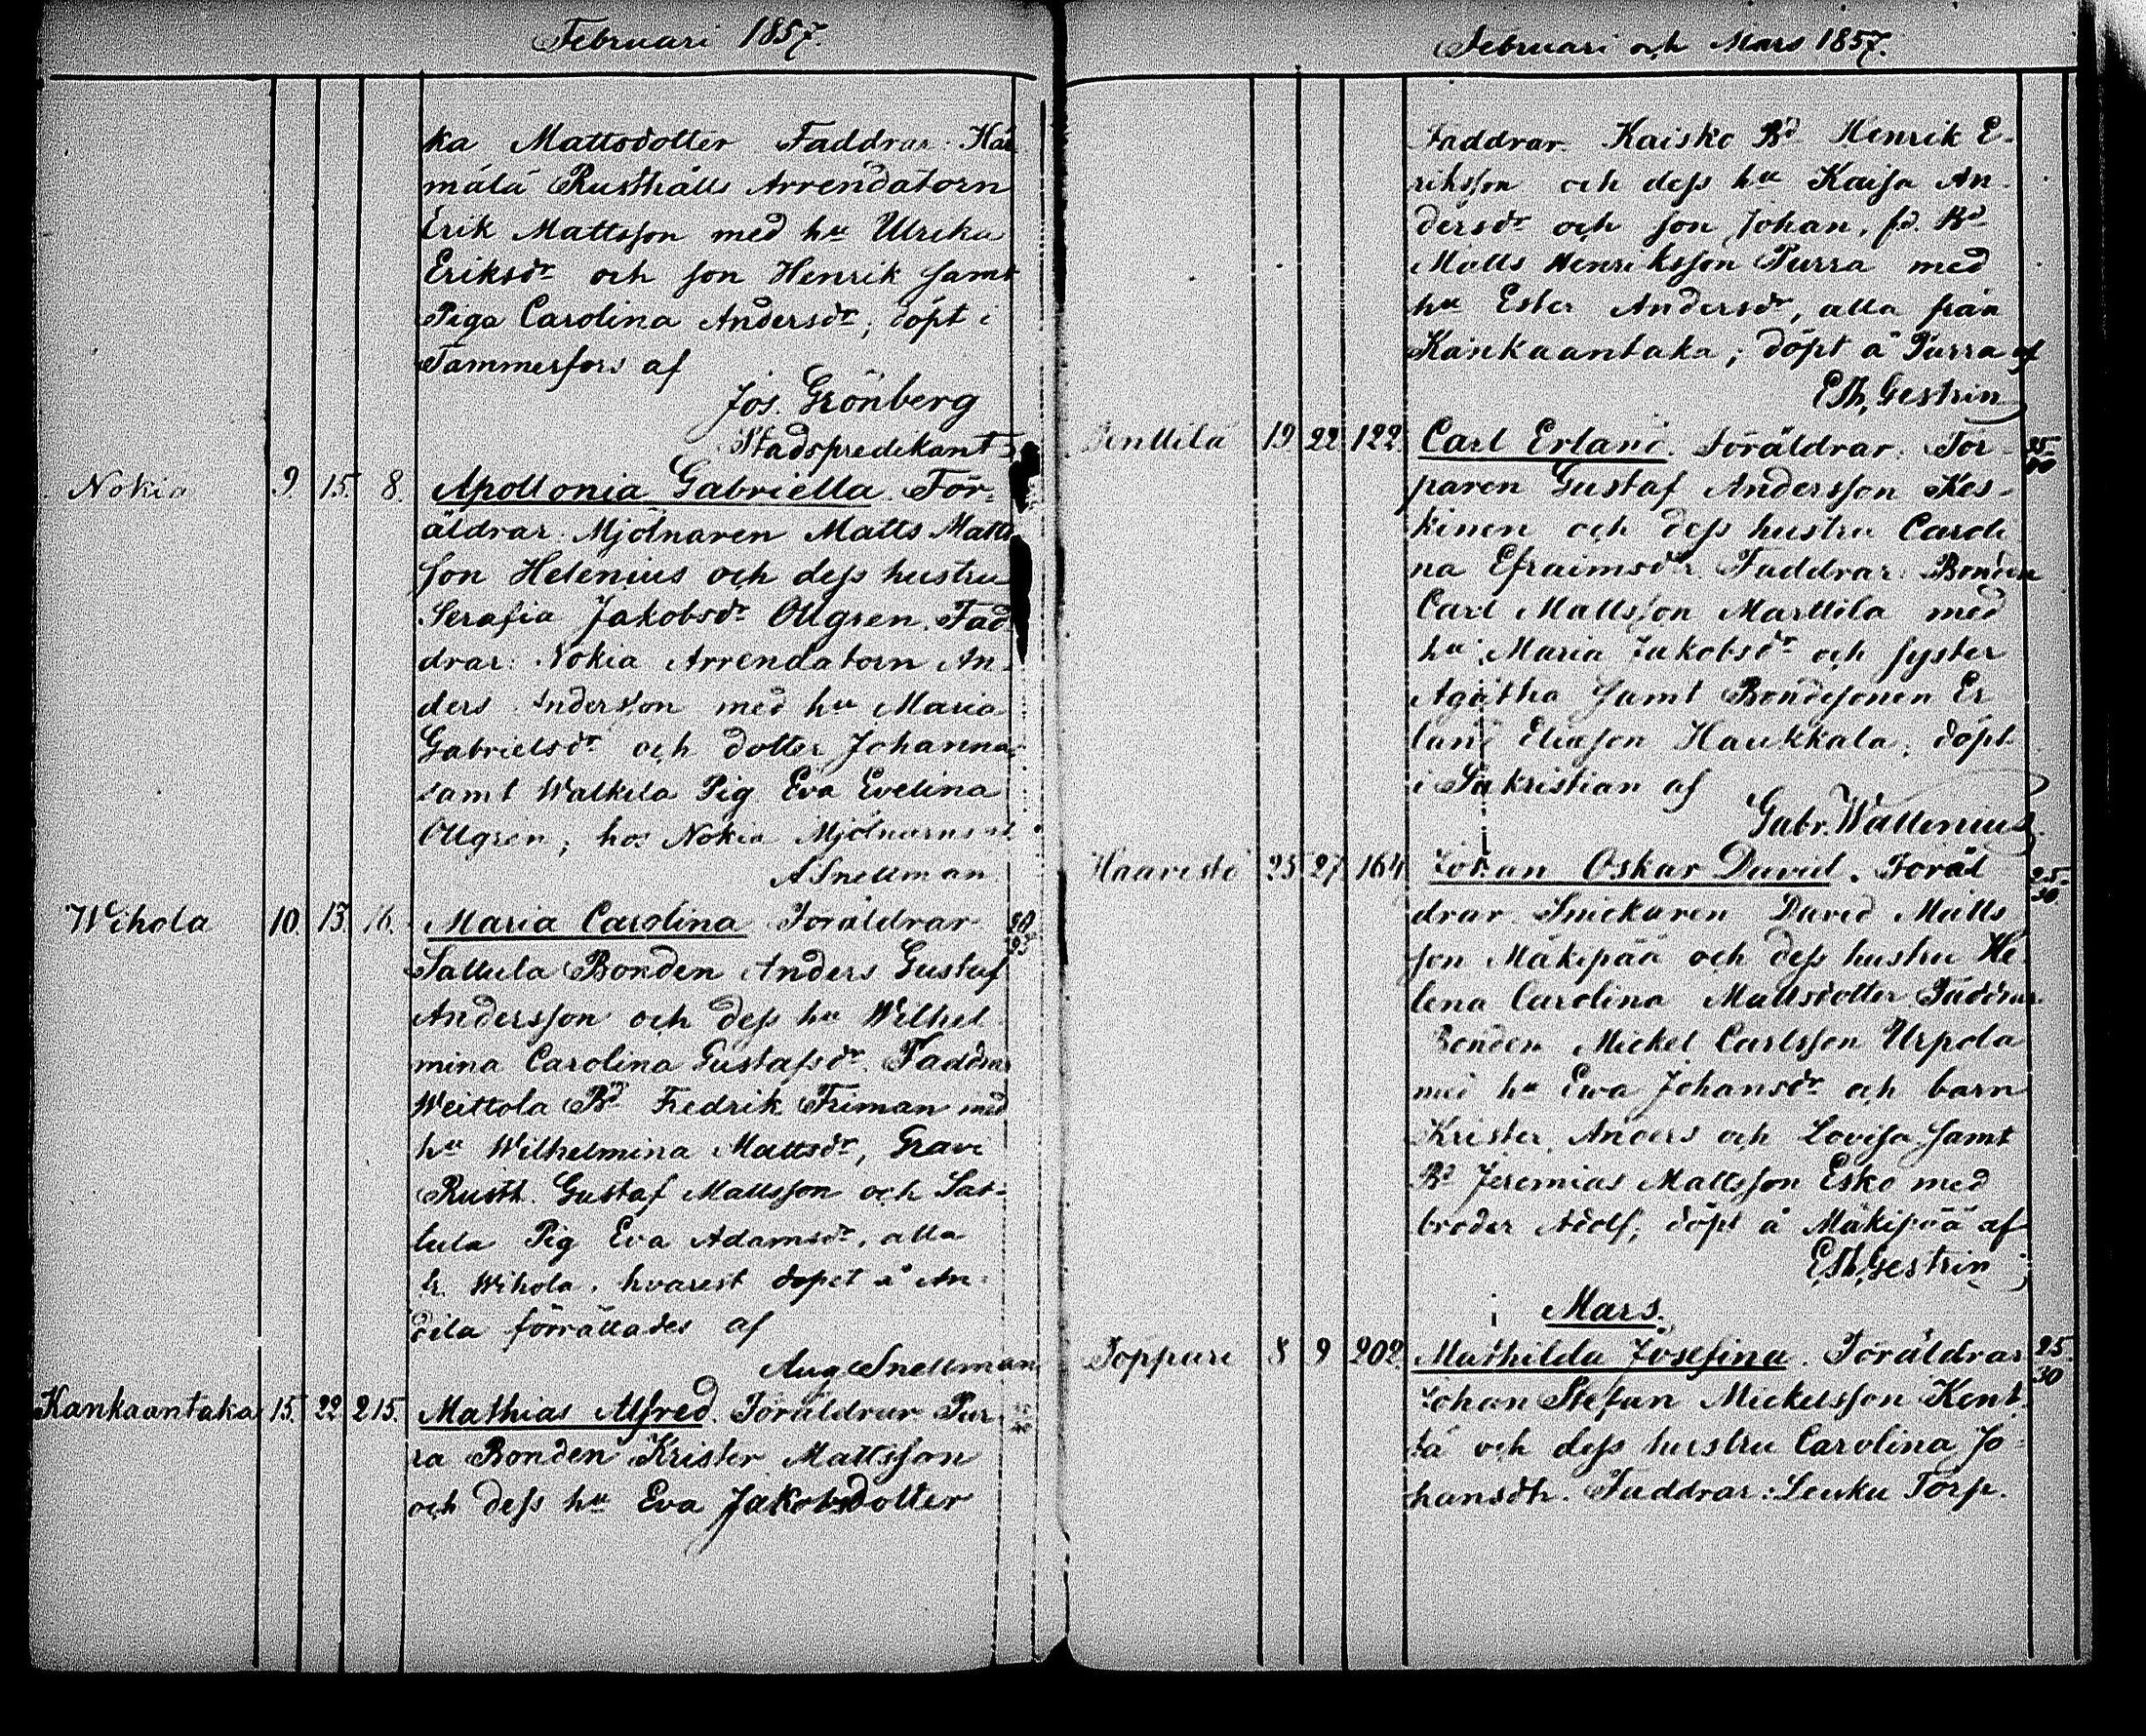 Februari 1857.
ka Mattsdotter Faddrar. Kär
mälä Rusthålls Arrendatorn
Erik Mattsson med hu Ulrika
Eriksdr och son Henrik samt
Piga Carolina Andersdr, döpt i
Tammerfors af
Jos. Grönberg
Stadspredikant
Nokia 9. 15. 8. Apollonia Gabriella. För-
äldrar. Mjölnaren Matts Matts
son Helenius och dess hustru
Serafia Jakobsdr Ollgren. Fad-
drar: Nokia Arrendatorn An-
ders Andersson med hu Maria
Gabrielsdr och dotter Johanna
samt Walkila Pig. Eva Evelina
Ollgren; hos Nokia
A Snellman
Wihola 10. 13. 16. Maria Carolina Föräldrar
Sallula Bonden Anders Gustaf
Andersson och dess hu Wilhel
mina Carolina Gustafsdr. Faddrar
Weittola Bd Fredrik Friman med
hu Wilhelmina Mattsdr, Gravi
Rusth. Gustaf Mattsson och Sal-
lula Pig Eva Adamsdr, alla
fr. Wihola, hvarest dopet å An-
dila förrättades af
Aug Snellman
Kankaantaka 15. 22 215. Mathias Alfred. Föräldrar Pur-
ra Bonden Krister Mattsson
och dess hu Eva Jakobsdotter
Februari och Mars 1857.
Faddrar. Kaisko Bd Henrik E-
riksson och dess hu Kaisa An-
dersdr och son Johan, fd. Bd
Matts Henriksson Purra med
hu Ester Andersdr, alla från
Kankaantaka; döpt å Purra af
E Th. Gestrin
Penttilä 19. 22. 122. Carl Erland. Föräldrar: Tor- 25-30
paren Gustaf Andersson Kes-
kinen och dess hustru Caroli
na Efraimsdr. Faddrar: Bonden
Carl Mattsson Marttila med
hu Maria Jakobsdr och syster
Agatha samt Bondesonen Er
land Eliasson Haukkala, döpt
i Sakristian af
Gabr. Wallenius
Haavisto 25 27 164. Johan Oskar David. Föräl 25-30
drar Snickaren David Matts
son Mäkipää och dess hustru He-
lena Carolina Mattsdotter Faddrar
Bonden Mickel Carlsson Urpola
med hu Ewa Johansdr och barn
Krister, Anders och Lovisa samt
Bd Jeremias Mattsson Esko med
broder Adolf; döpt å Mäkipää af
E Th. Gestrin
Mars.
Toppari 8 9 202. Mathilda Josefina. Föräldrar 25-30
Johan Stefan Mickelsson Kent
tä och dess hustru Carolina Jo-
hansdtr. Faddrar: Leuku Torp.